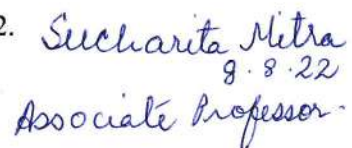 2. Sucharita Mitra
9.8.22
Associate Professor.